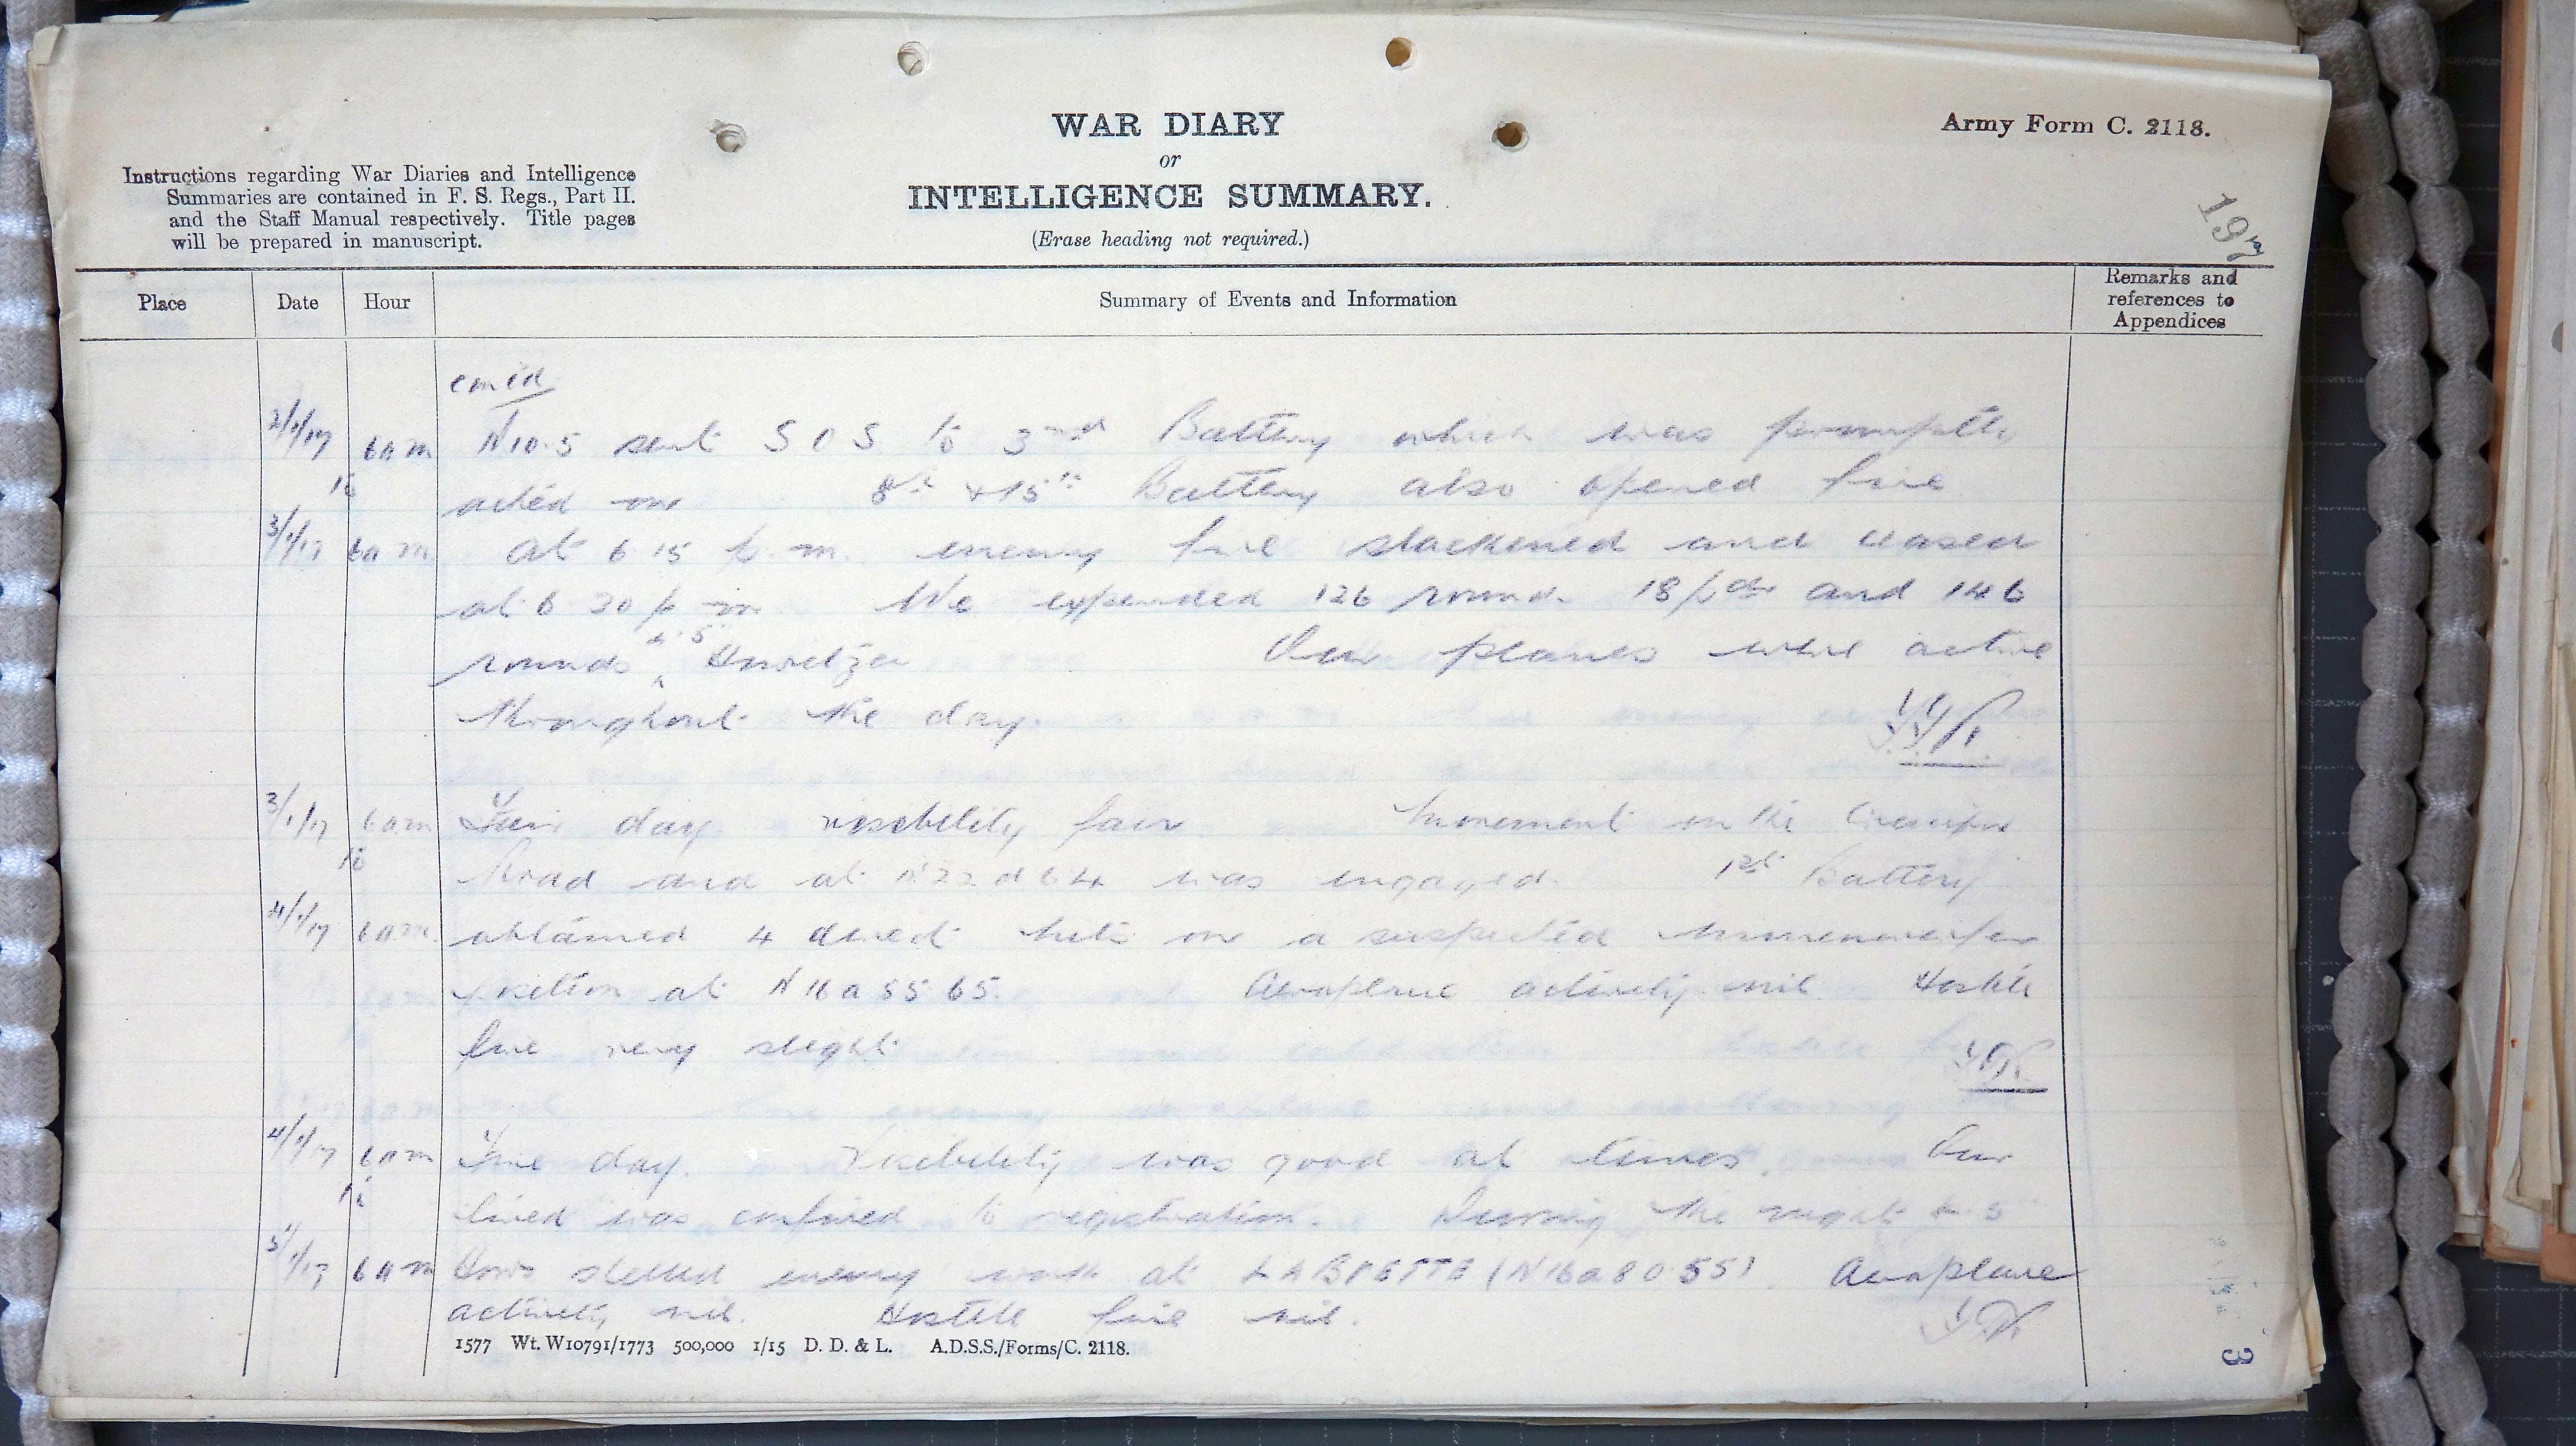 WAR DIARY
or
INTELLIGENCE SUMMARY.
(Erase heading not required.)
Army Form C. 2118.
Instructions regarding War Diaries and Intelligence
Summaries are contained in F. S. Regs., Part II.
and the Staff Manual respectively. Title pages
will be prepared in manuscript.
197
Place Date Hour Summary of Events and Information Remarks and references to Appendices
contd
2/1/17 6 am N10.5 sent S O S to 3rd Battery which was promptly
to acted on 8th & 15th Battery also opened fire
3/1/17 6 am at 6 15 p.m. enemy fire slackened and ceased
at 6 20 p m We expended 126 rounds 18 pdr and 146
rounds 4.5 Howitzer Our planes were active
throughout the day.
3/1/17 6 am Fair day visibility fair Movement on the
to Road and at N22d 6 4 was engaged. 1st Battery
4/1/17 6 am obtained 4 direct hits on a suspected Minenwerfer
position at N16a 55 65. Aeroplane activity nil Hostile
fire very slight
4/1/17 6 am Fine day. Visibility was good at times. Our
to fired was confined to registration. During the night 4.5
5/1/17 6 am Hows shelled enemy work at (N16a 80 55) Aeroplane
activity nil. Hostile fire nil.
1577 Wt. W10791/1773 500,000 1/15 D. D. & L. A.D.S.S./Forms/C. 2118.
3